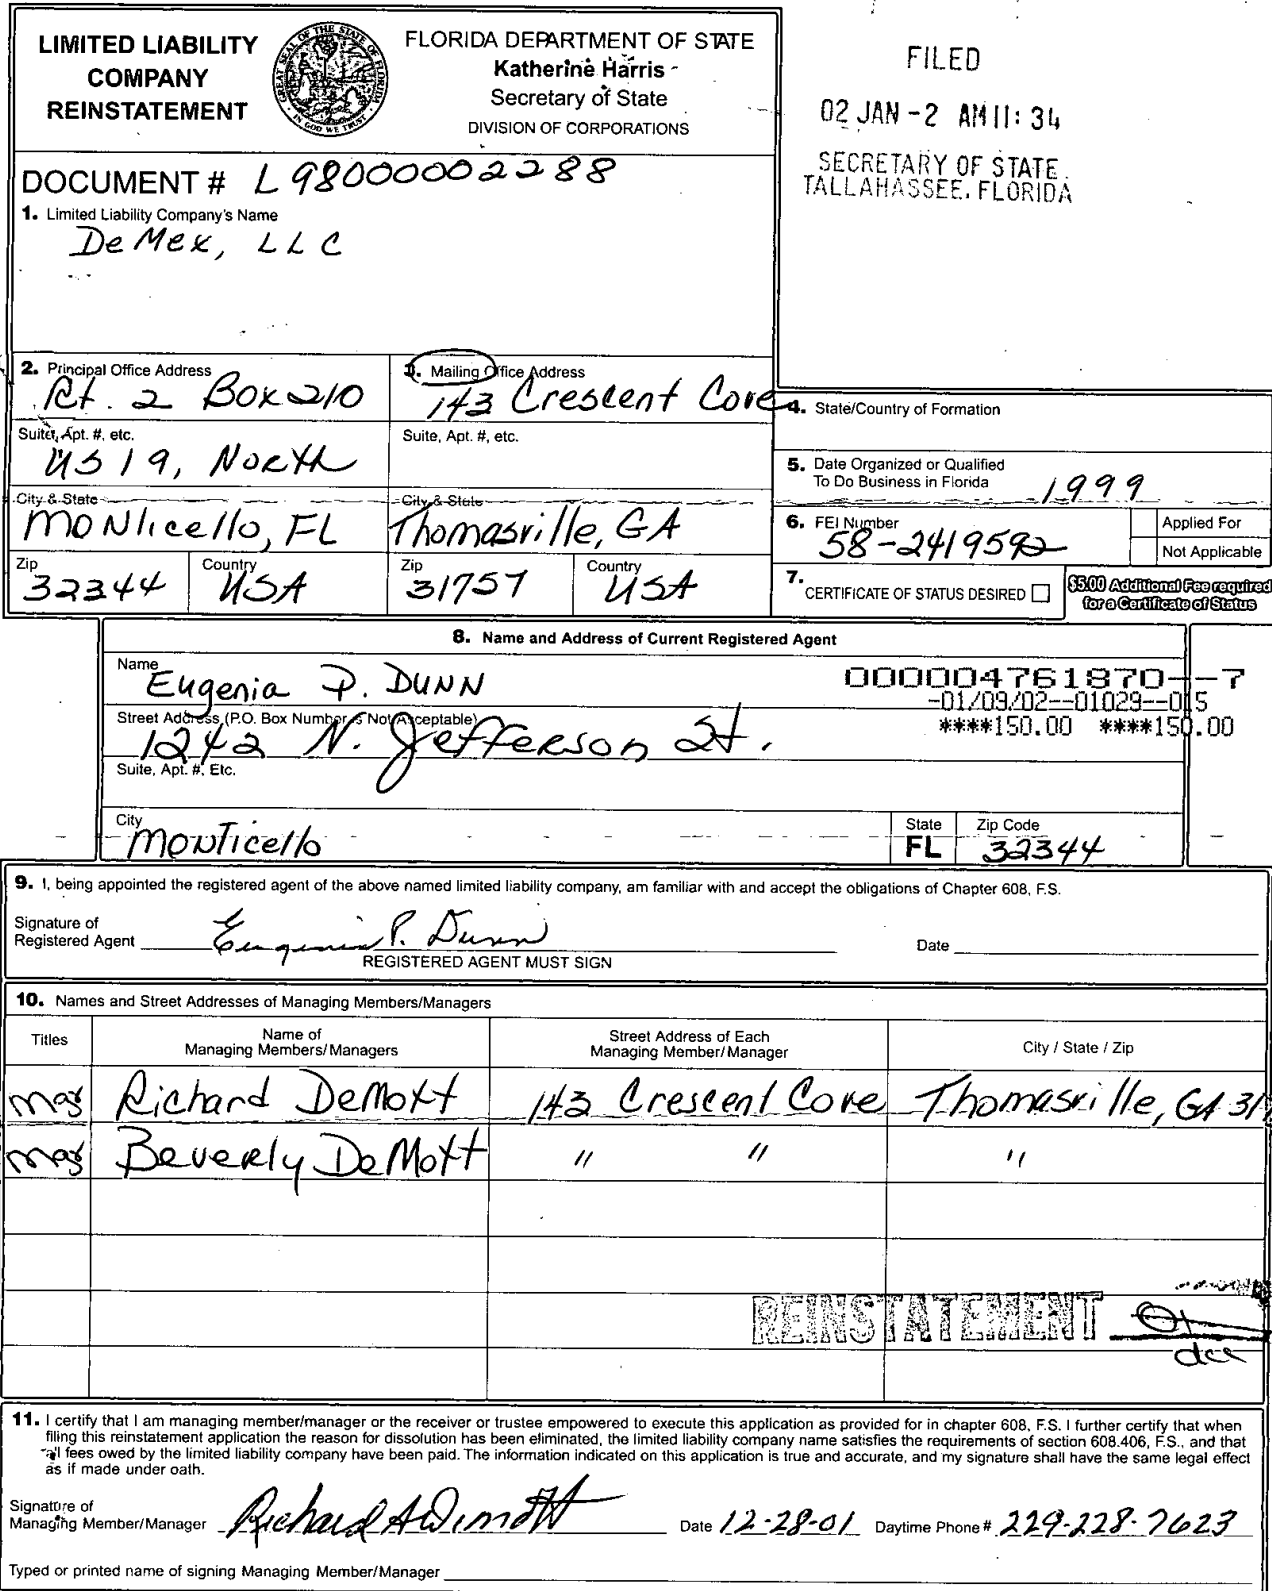 LIMITED LIABILITY
COMPANY
REINSTATEMENT
GREAT SEAL OF THE STATE OF FLORIDA
IN GOD WE TRUST
FLORIDA DEPARTMENT OF STATE
Katherine Harris
Secretary of State
DIVISION OF CORPORATIONS
FILED
02 JAN -2 AM 11: 34
SECRETARY OF STATE
TALLAHASSEE, FLORIDA
DOCUMENT # L98000002288
1. Limited Liability Company's Name
DeMex, LLC
2. Principal Office Address
Rt. 2 Box 210
Suite, Apt. #, etc.
US 19, North
City & State
Monticello, FL
Zip
32344
Country
USA
3. Mailing Office Address
143 Crescent Cove
Suite, Apt. #, etc.
City & State
Thomasville, GA
Zip
31757
Country
USA
4. State/Country of Formation
5. Date Organized or Qualified
To Do Business in Florida
1999
6. FEI Number
58-2419592
Applied For
Not Applicable
7. CERTIFICATE OF STATUS DESIRED
$5.00 Additional Fee required
for a Certificate of Status
8. Name and Address of Current Registered Agent
Name
Eugenia P. Dunn
000004761870--7
-01/09/02--01029--015
****150.00 ****150.00
Street Address (P.O. Box Number is Not Acceptable)
1242 N. Jefferson St.
Suite, Apt. #, Etc.
City
Monticello
State
FL
Zip Code
32344
9. I, being appointed the registered agent of the above named limited liability company, am familiar with and accept the obligations of Chapter 608, F.S.
Signature of
Registered Agent Eugenia P. Dunn
Date
REGISTERED AGENT MUST SIGN
10. Names and Street Addresses of Managing Members/Managers
Titles
Name of
Managing Members/Managers
Street Address of Each
Managing Member/Manager
City / State / Zip
Mgr Richard DeMott 143 Crescent Cove Thomasville, GA 317
Mgr Beverly DeMott " " "
REINSTATEMENT
dcc
11. I certify that I am managing member/manager or the receiver or trustee empowered to execute this application as provided for in chapter 608, F.S. I further certify that when
filing this reinstatement application the reason for dissolution has been eliminated, the limited liability company name satisfies the requirements of section 608.406, F.S., and that
all fees owed by the limited liability company have been paid. The information indicated on this application is true and accurate, and my signature shall have the same legal effect
as if made under oath.
Signature of
Managing Member/Manager Richard A DeMott Date 12-28-01 Daytime Phone # 229-228-7623
Typed or printed name of signing Managing Member/Manager